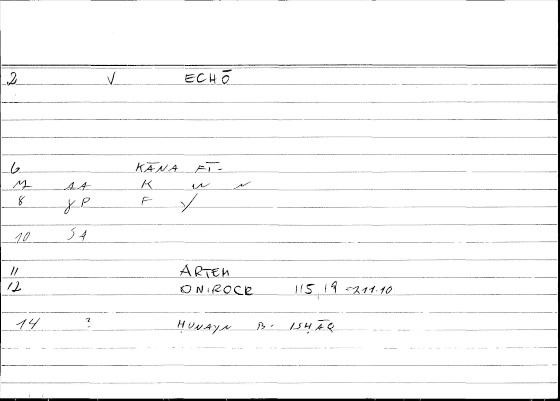 2 V ECHŌ
6 KĀNA FĪ-
M SA K W N
8 γP F Y
10 SA
11 ARTEM
12 ONIROCR 115,19-211.10
14 ? ḤUNAYN B. ISḤĀQ